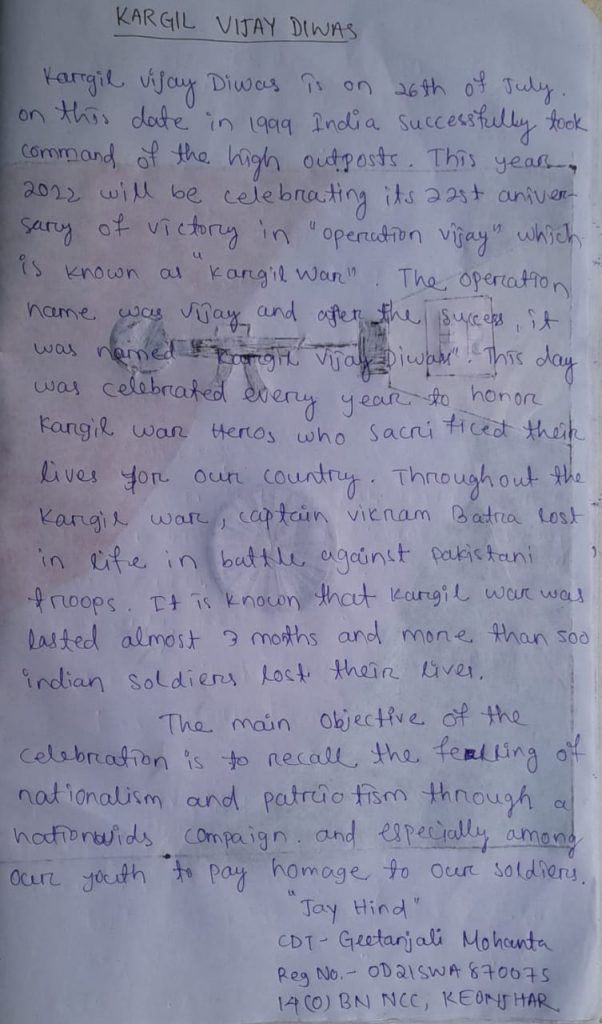 KARGIL VIJAY DIWAS
Kargil Vijay Diwas is on 26th of July.
on this date in 1999 India successfully took
command of the high outposts. This year,
2022 will be celebrating its 22st aniver-
sary of victory in "operation vijay" which
is known as "Kargil War". The operation
name was vijay and after the success, it
was named "Kargil Vijay Diwas". This day
was celebrated every year to honor
Kargil war Heros who sacrificed their
lives for our country. Throughout the
Kargil war, captain vikram Batra lost
in life in battle against pakistani
troops. It is known that Kargil war was
lasted almost 3 moths and more than 500
indian soldiers lost their lives.
The main objective of the
celebration is to recall the feelling of
nationalism and patriotism through a
nationwids campaign. and especially among
our youth to pay homage to our soldiers.
"Jay Hind"
CDT- Geetanjali Mohanta
Reg No.- OD21SWA870075
14(O) BN NCC, KEONJHAR